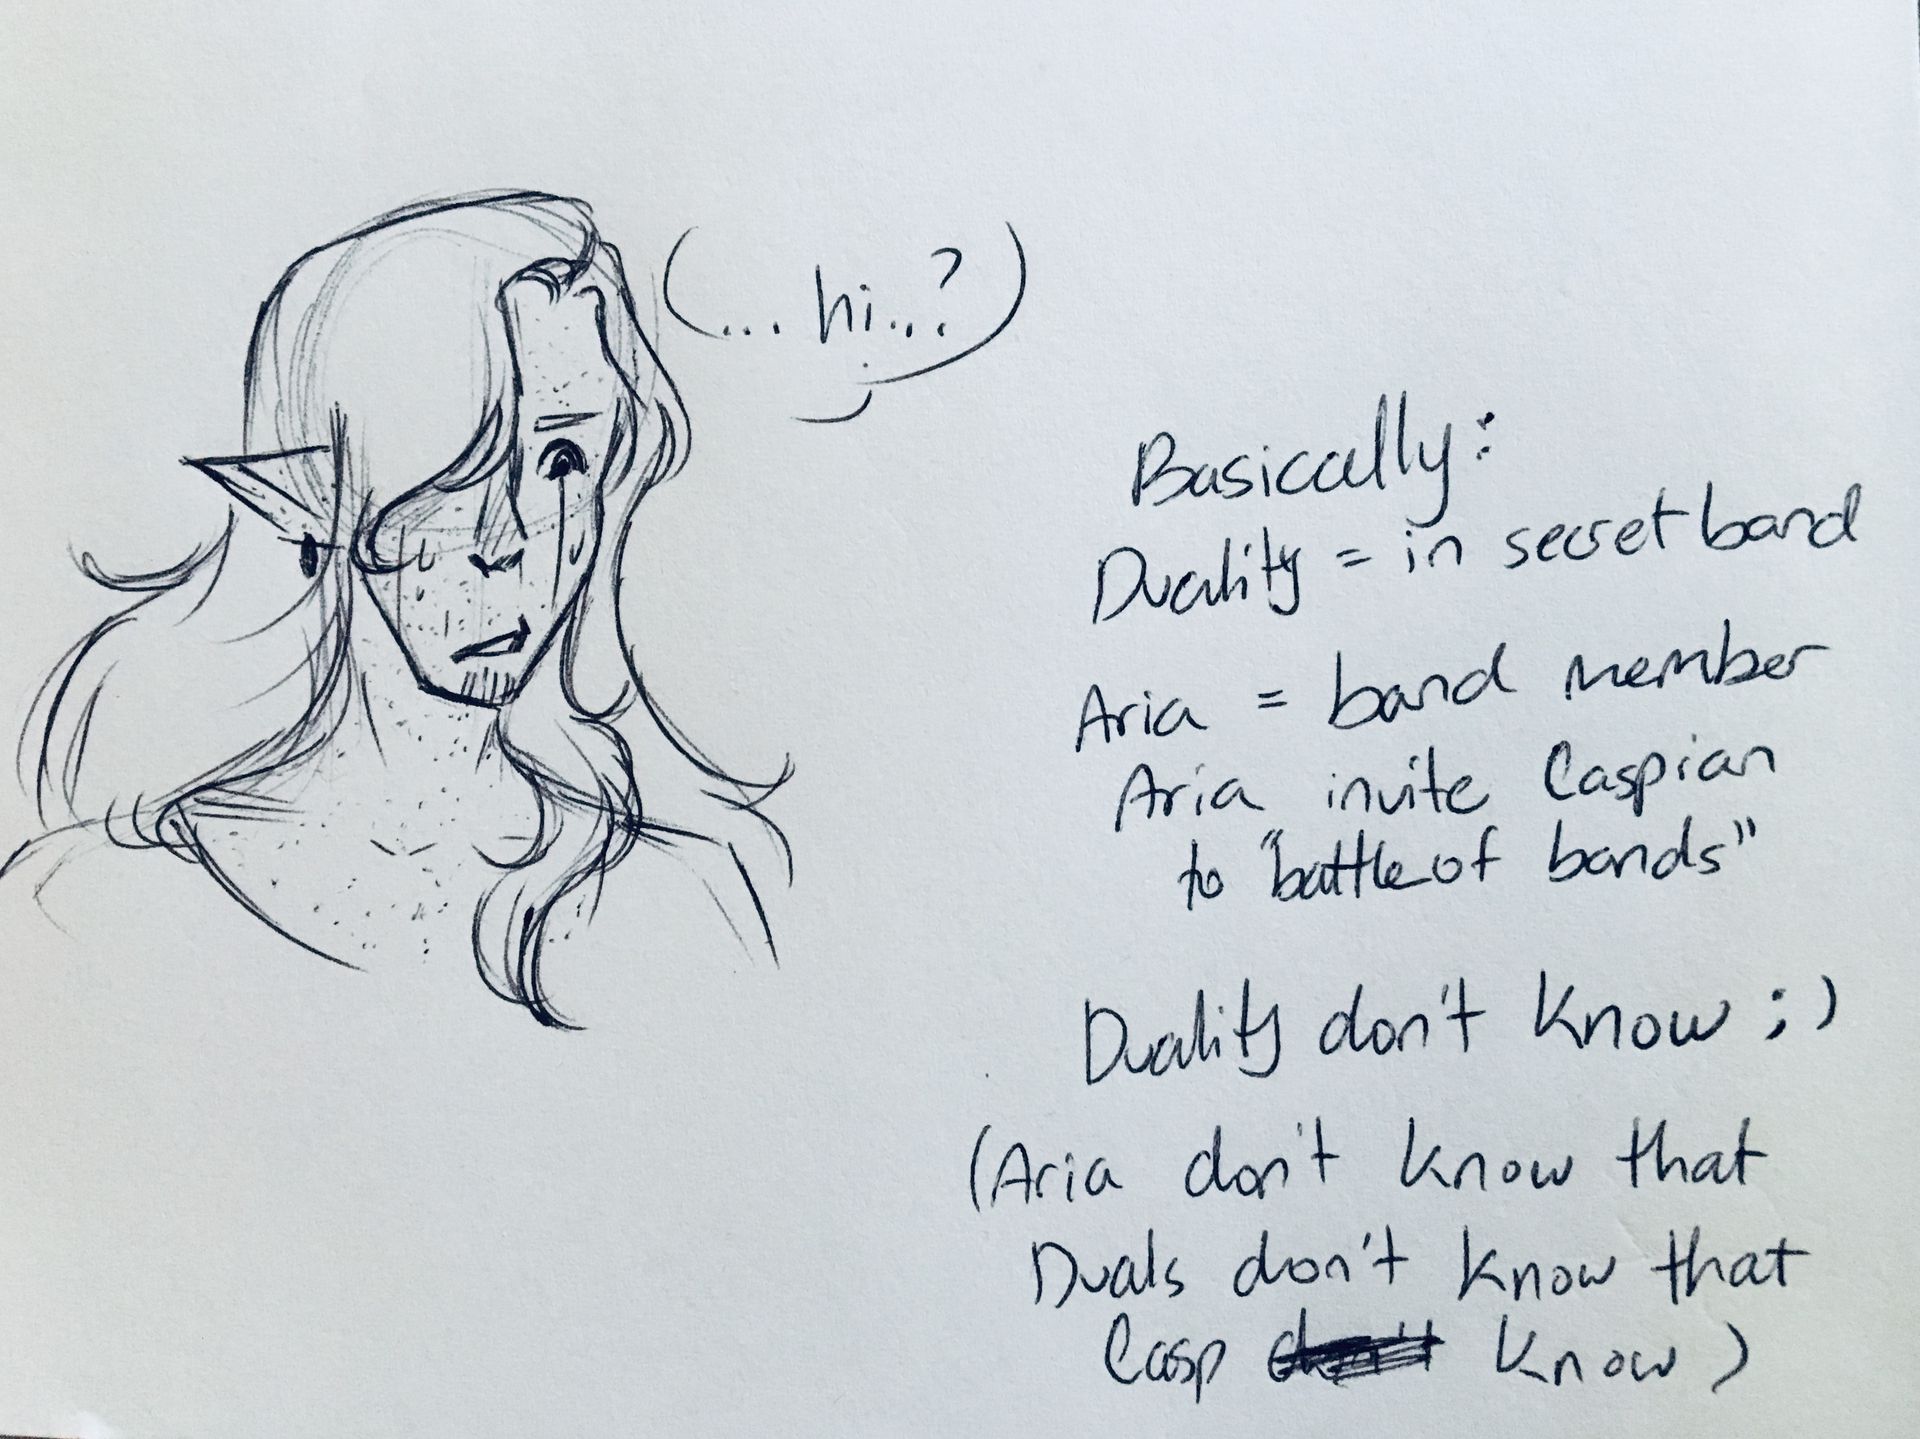 ... hi...?
Basically:
Duality = in secret band
Aria = band member
Aria invite Caspian
to "battle of bands"
Duality don't know ;)
(Aria don't know that
Duals don't know that
Casp don't know)